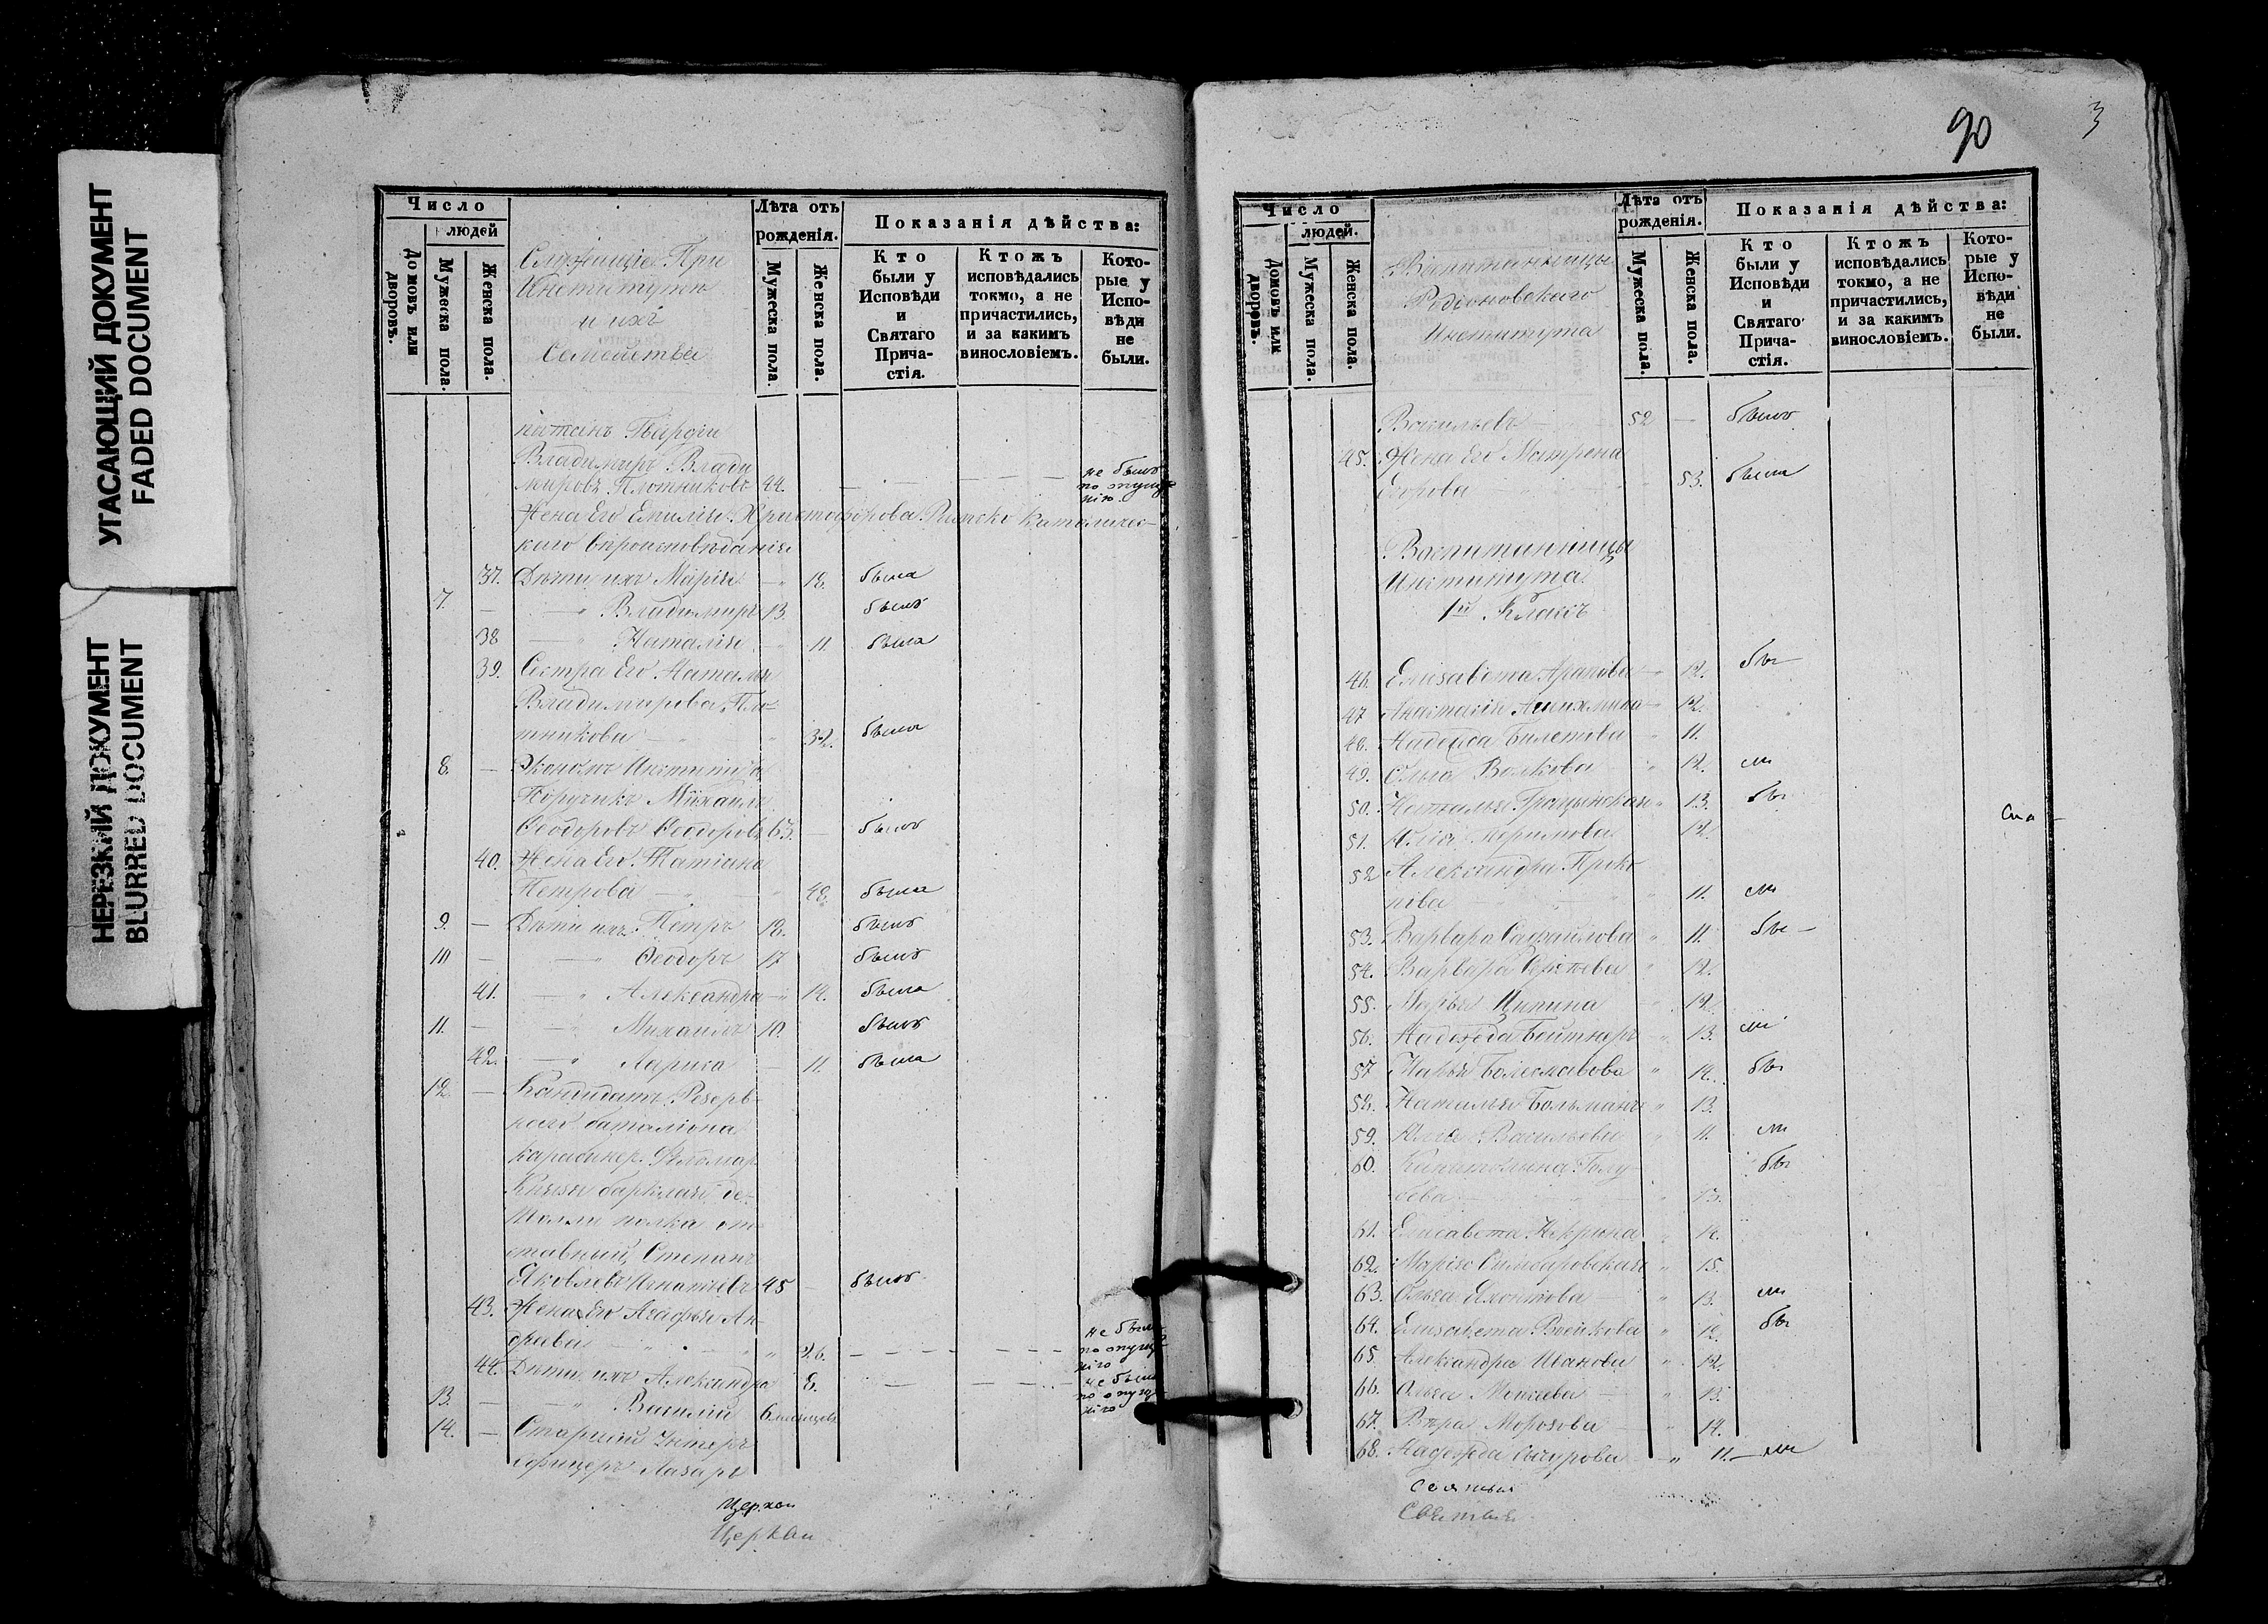 УГАСАЮЩИЙ ДОКУМЕНТ
FADED DOCUMENT
НЕРЕЗКИЙ ДОКУМЕНТ
BLURRED DOCUMENT
Число
людей
Домовъ или дворовъ.
Мужеска пола.
Женска пола.
Служащіе При
Институтѣ
и ихъ
Семейства
Лѣта отъ рожденія.
Мужеска пола.
Женска пола.
Показанія дѣйства:
Кто были у Исповѣди и Святаго Причастія.
Ктожъ исповѣдались токмо, а не причастились, и за какимъ винословіемъ.
Которые у Исповѣди не были.
питанъ Гвардіи
Владимиръ Влади
мировъ Плотниковъ 44. не былъ по опущенію
Жена Его Емилія Христофорова Римско Католичес-
каго вѣроисповѣданія
37. Дѣти ихъ Марія 18. была
7. — " Владимиръ 13. былъ
38 — " Наталія 11. была
39. Сестра Его Наталья
Владимирова Пло-
тникова 32. была
8. — Экономъ Института
Поручикъ Михаилъ
Ѳеодоровъ Ѳеодоровъ 63. — былъ
40. Жена Его Татіана
Петрова — 48. была
9. — Дѣти ихъ Петръ 18. былъ
10 — — " Ѳеодоръ 17 былъ
41. — " Александра 14. была
11. — — " Михаилъ 10. былъ
42. — " Лариса — 11. была
12. — Кандидатъ Резерв-
наго баталіона
карабинер. Фелдмар.
Князя барклай де-
Толли полка от-
ставный, Степанъ
Яковлевъ Игнатьевъ 45 — былъ
43. Жена Его Агафья Ан-
дреева 26. не была по опущенію
44. Дѣти ихъ Александра 8. не была по опущенію
13. — — " Василій 6 мѣсяцевъ
14. — Старшій Унтеръ
офицеръ Лазарь
Церкви
Церкви
90
3
Число
людей.
Домовъ или дворовъ.
Мужеска пола.
Женска пола.
Воспитанницы
Родіоновскаго
Института
Лѣта отъ рожденія.
Мужеска пола.
Женска пола.
Показанія дѣйства:
Кто были у Исповѣди и Святаго Причастія.
Ктожъ исповѣдались токмо, а не причастились, и за какимъ винословіемъ.
Которые у Исповѣди не были.
Васильевъ 52 — былъ
45. Жена Его Матрена
Егорова 53. была
Воспитанницы
Института
1й Классъ
46. Елизавета Арапова 12. бы—
47 Анастасія 12.
48. Надежда Билетова 11.
49. Ольга Волкова 12. ли
50. Наталья 13. бы
51. Юлія 12.
52 Александра Проко
пова 11. ли
53. Варвара 11. бы —
54. Варвара 12.
55. Марья Ципина 12.
56. Надежда 13. ли
57 Марья Болеславова 14. бы
58. Наталья Больманъ 13.
59. Юлія Васильева 11. ли
60. Капитолина Голу- бы
бева 13.
61. Елисавета 14.
62. Марія Симбаровская 15.
63. Ольга Яхонтова 13. ли
64. Елизавета Воейкова 12. бы
65. Александра Иванова 12.
66. Ольга Моисеева 13.
67. Вѣра Морозова 14.
68. Надежда 11. — ли